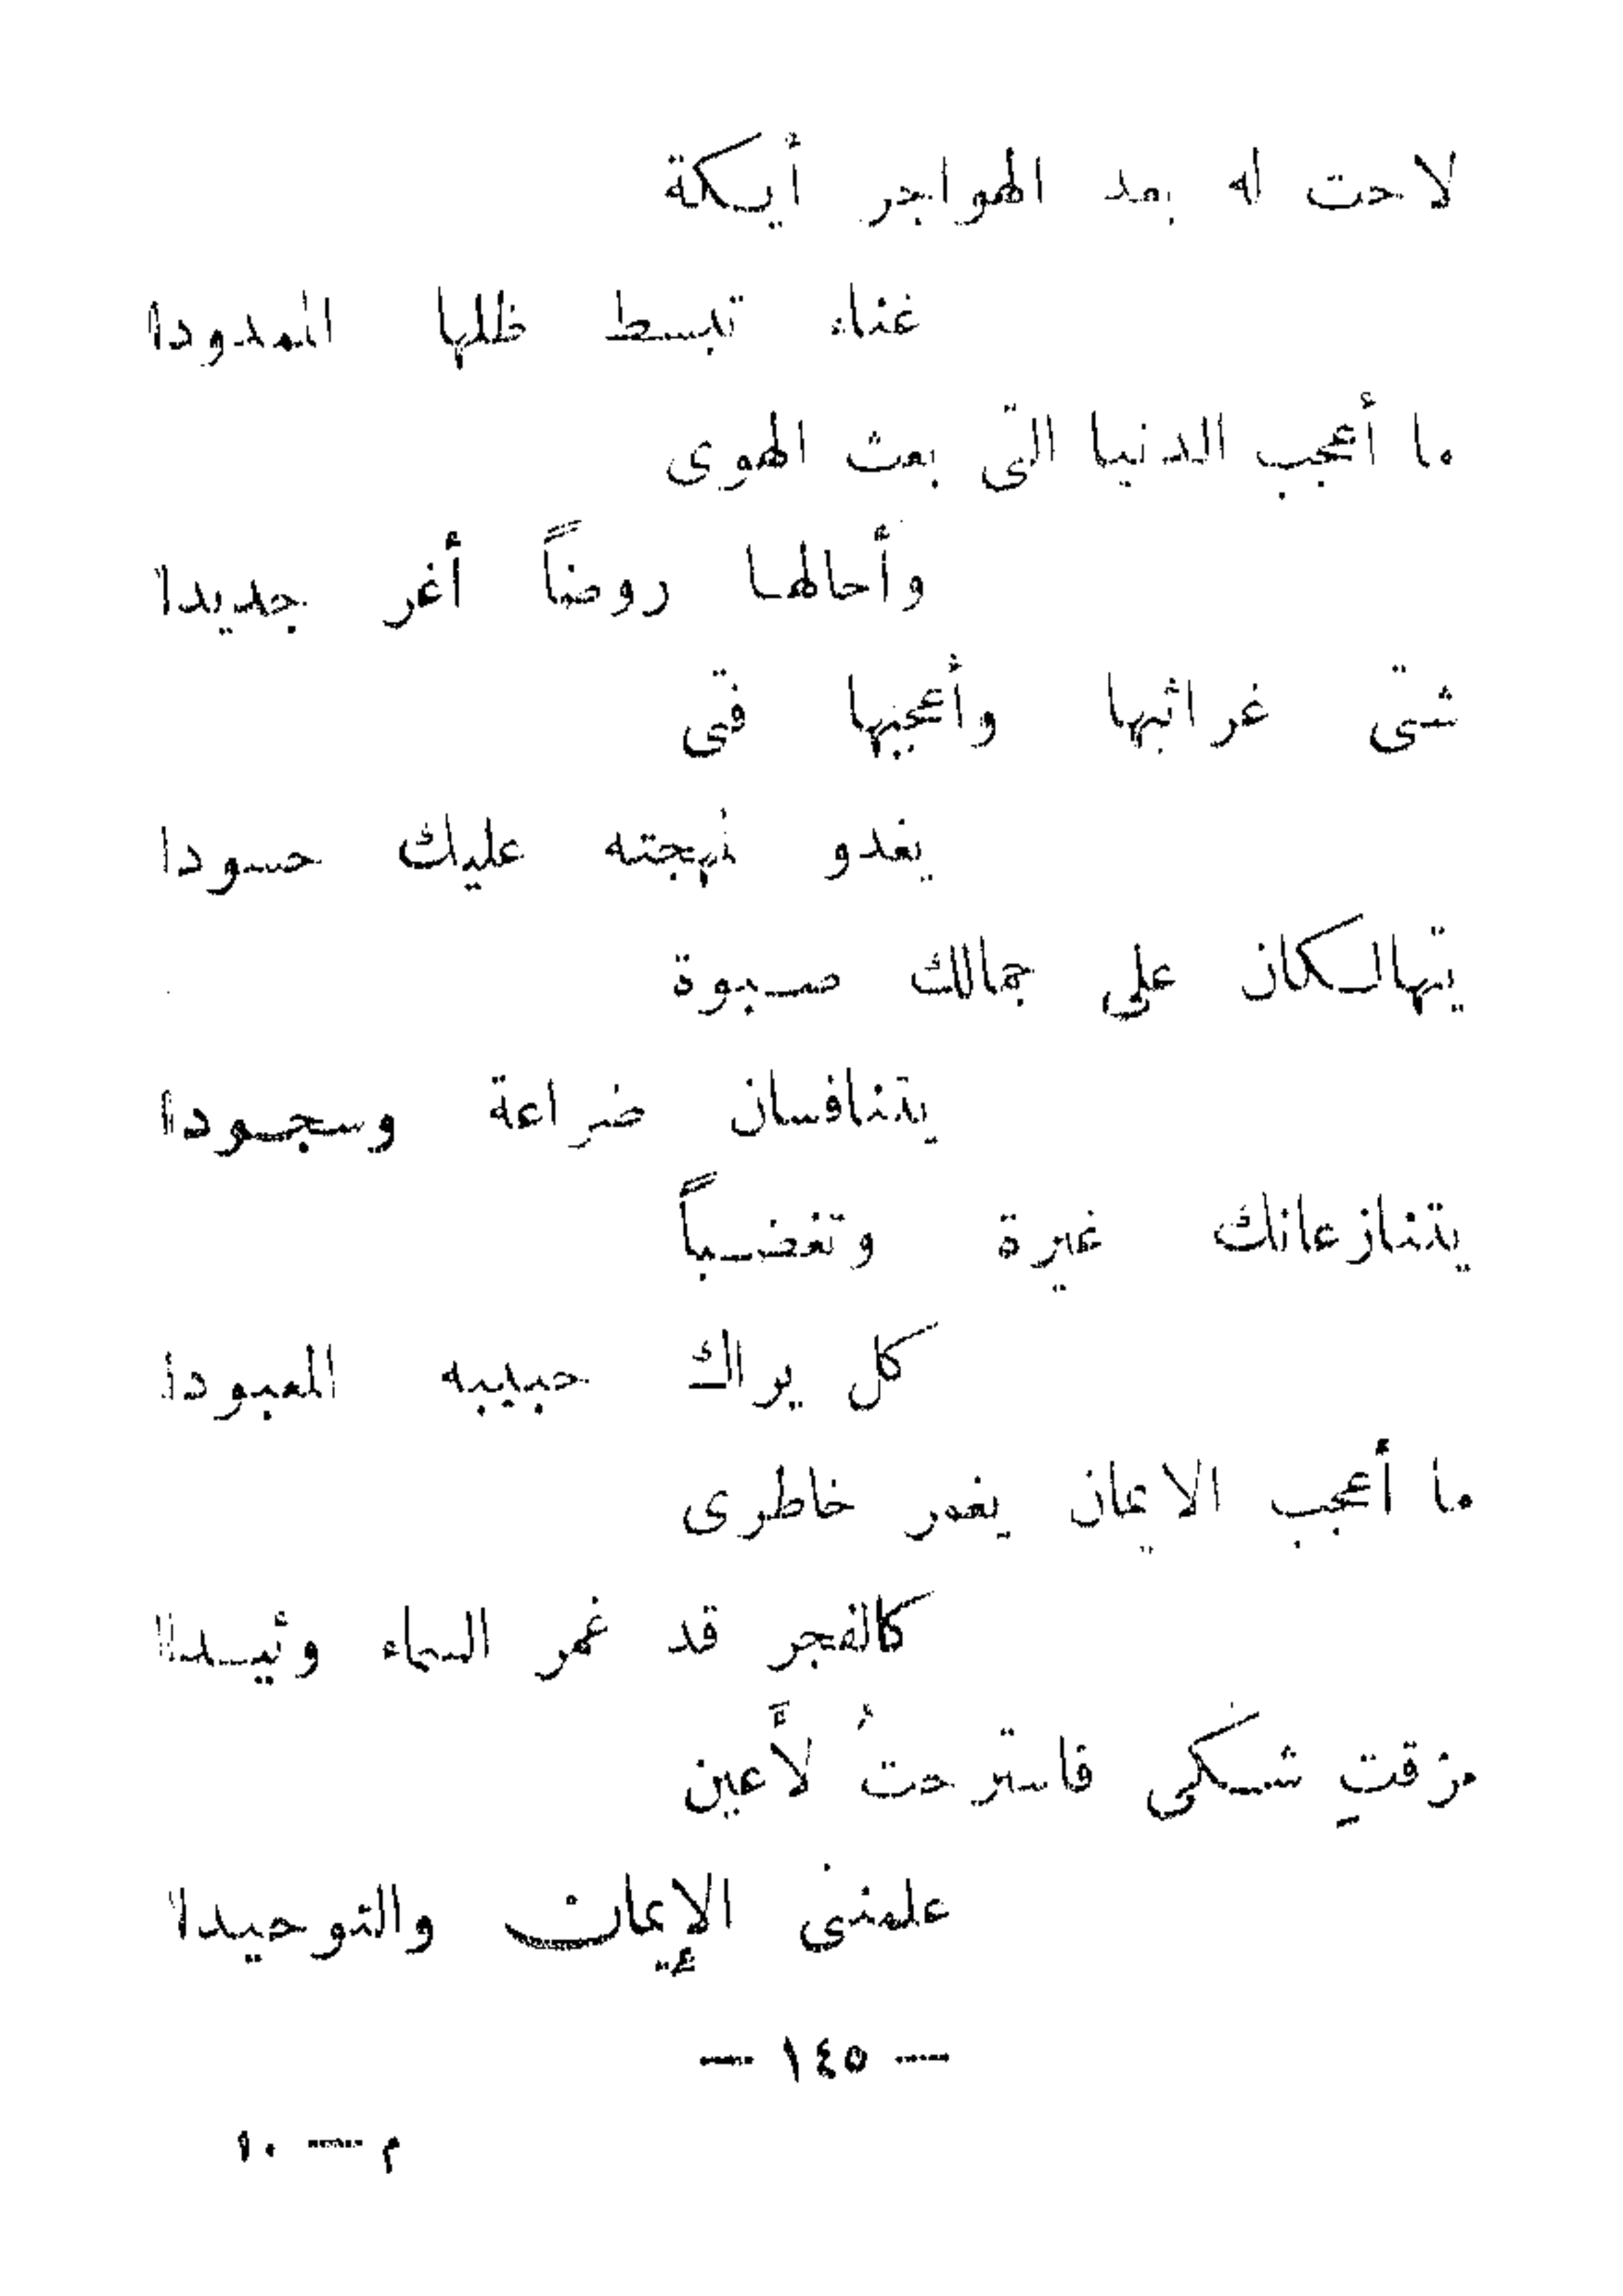 لاحت له بعد الهواجر أيكة
غناء تبسط ظلها الممدودا
ما أعجب الدنيا التى بعث الهوى
وأحالها روضاً أغر جديدا
شتى غرائبها وأعجبها فتى
يغدو لمهجته عليك حسودا
يتهالكان على جمالك صبوة
يتنافسان ضراعة وسجودا
يتنازعانك غيرة وتغضباً
كل يراك حبيبه المعبودا
ما أعجب الايمان يغمر خاطرى
كالفجر قد غمر السماء وئيدا
مزقتِ شكى فاسترحتُ لأعين
علمننى الإيمان والتوحيدا
— ١٤٥ —
م — ١٠